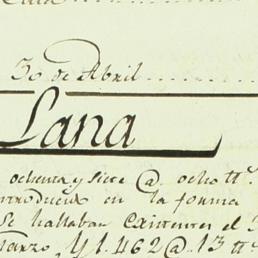 30 de Abril
Lana
ochenta y siete @ ocho tt.
introducen en la forma
se hallaban existentes el 3
Marzo, y 1.462 @ 13 tt.